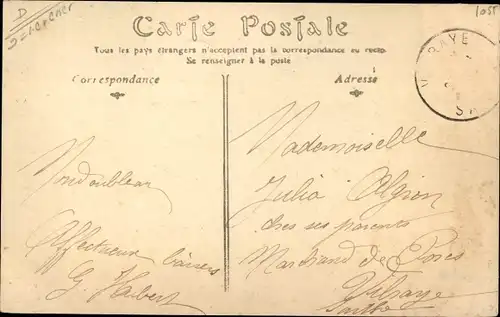 D
Carte Postale
Tous les pays étrangers n'acceptent pas la correspondance au recto.
Se renseigner à la poste
Correspondance
Adresse
RAYE
Mondoubleau
Affectueux baisers
G. Hubert
Mademoiselle
Julia
chez ses parents
Marchand de Porcs
Vibraye
Sarthe